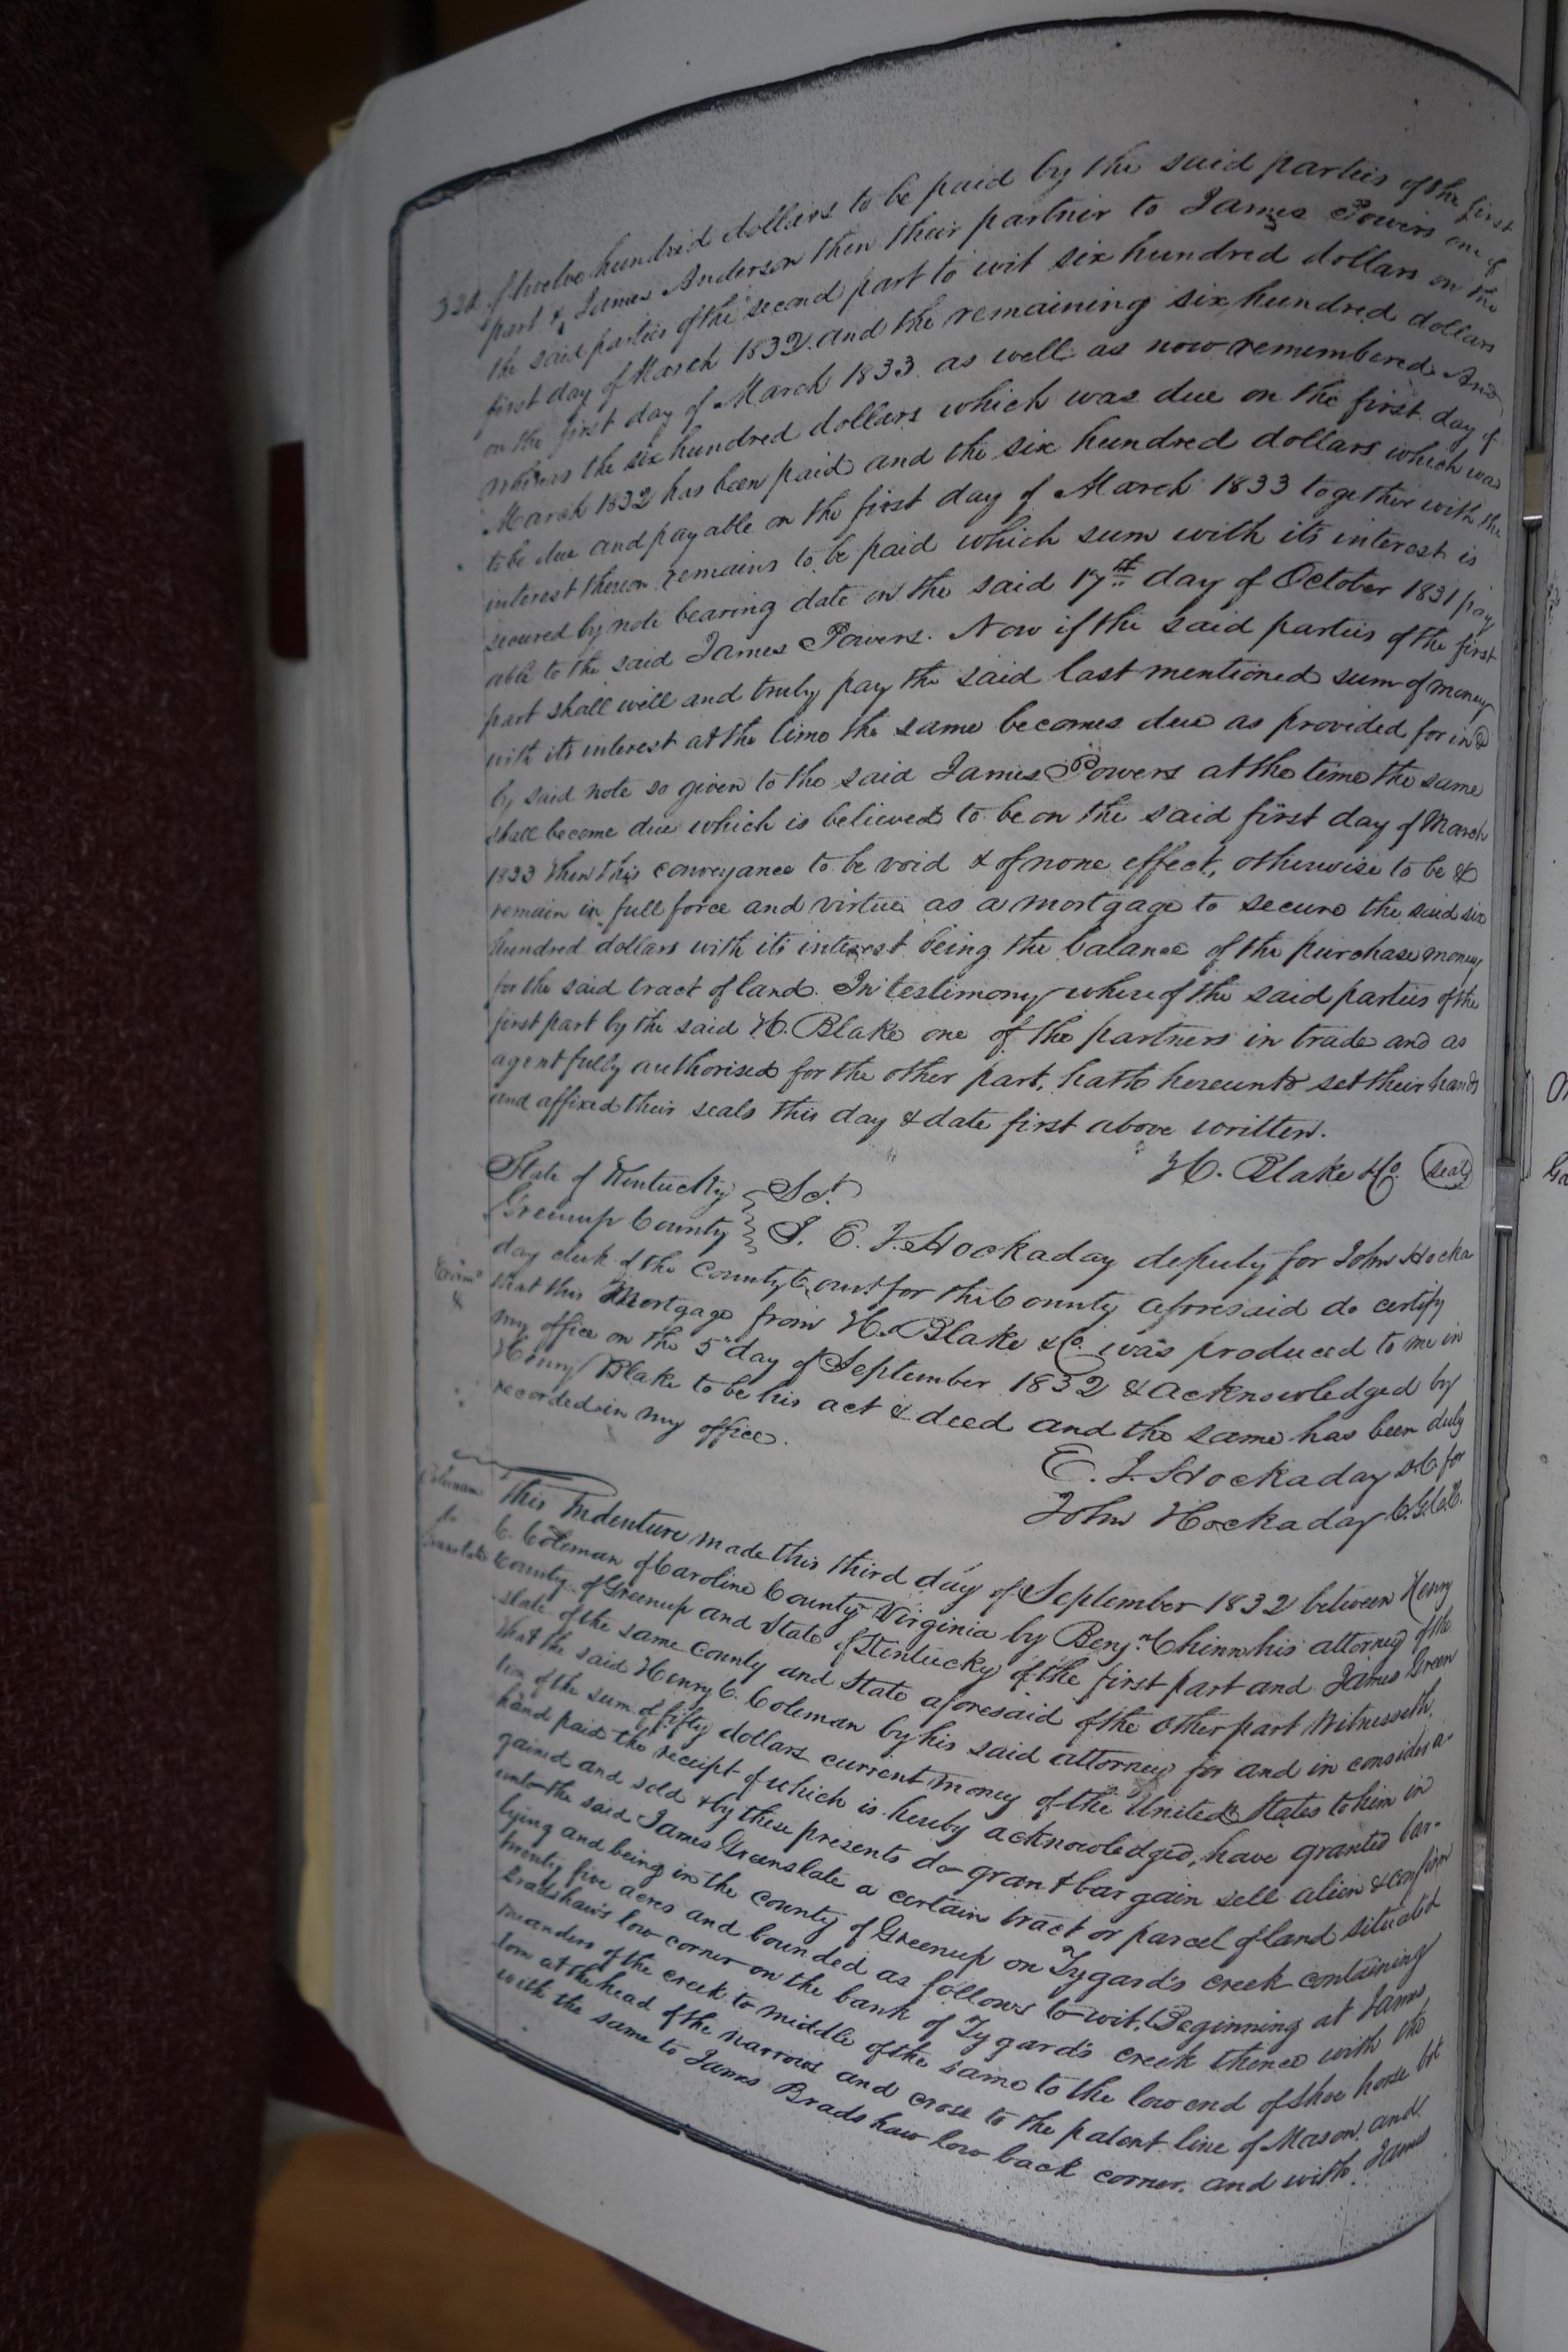 of twelve hundred dollars to be paid by the said parties of the first
part & James Anderson then their partner to James Powers one of
the said parties of the second part to wit six hundred dollars on the
first day of March 1832 and the remaining six hundred dollars
on the first day of March 1833 as well as now remembered And
whereas the six hundred dollars which was due on the first day of
March 1832 has been paid and the six hundred dollars which was
to be due and payable on the first day of March 1833 together with the
interest thereon remains to be paid which sum with its interest is
secured by note bearing date on the said 17th day of October 1831 pay
able to the said James Powers. Now if the said parties of the first
part shall well and truly pay the said last mentioned sum of money
with its interest at the time the same becomes due as provided for in &
by said note so given to the said James Powers at the time the same
shall become due which is believed to be on the said first day of March
1833 then this conveyance to be void & of none effect, otherwise to be &
remain in full force and virtue as a mortgage to secure the said six
hundred dollars with its interest being the balance of the purchase money
for the said tract of land. In testimony whereof the said parties of the
first part by the said H. Blake one of the partners in trade and as
agent fully authorised for the other part, hath hereunto set their hands
and affixed their seals this day & date first above written.
H. Blake & Co. (seal)
State of Kentucky } Sct.
Greenup County } I. E. F. Hockaday deputy for John Hocka
day clerk of the County Court for the County aforesaid do certify
that this Mortgage from H. Blake & Co. was produced to me in
my office on the 5th day of September 1832 & acknowledged by
Henry Blake to be his act & deed and the same has been duly
recorded in my office.
E. F. Hockaday D.C. for
John Hockaday C.G.C.C.
Coleman
to
Greenslate
This Indenture made this third day of September 1832 between Henry
C. Coleman of Caroline County Virginia by Benjn. Chinn his attorney of the
County of Greenup and State of Kentucky of the first part and James Green
slate of the same County and State aforesaid of the other part Witnesseth,
that the said Henry C. Coleman by his said attorney for and in considera-
tion of the sum of fifty dollars current money of the United States to him in
hand paid the receipt of which is hereby acknowledged, have granted bar-
gained and sold & by these presents do grant & bargain sell alien & confirm
unto the said James Greenslate a certain tract or parcel of land situated
lying and being in the county of Greenup on Tygard's creek containing
twenty five acres and bounded as follows to wit. Beginning at James
Bradshaw's low corner on the bank of Tygard's creek thence with the
meanders of the creek to middle of the same to the low end of shoe horse bot
tom at the head of the narrows and cross to the patent line of Mason and
with the same to James Bradshaw low back corner. and with James